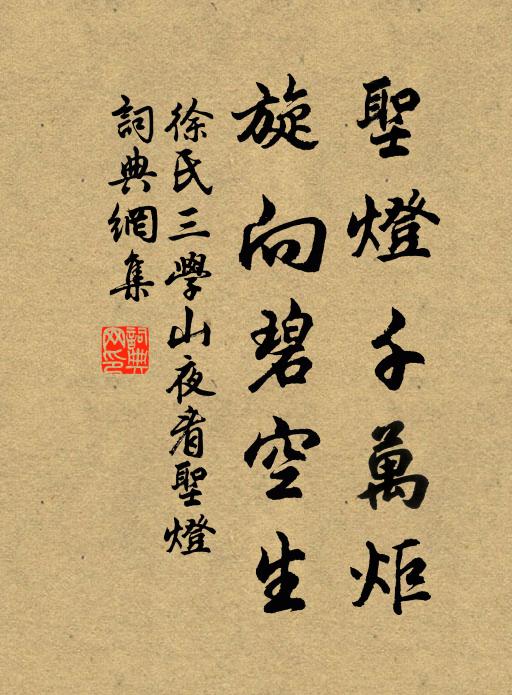 聖燈千萬炬
旋向碧空生
徐氏三學山夜看聖燈
詞典網集
詞典网印